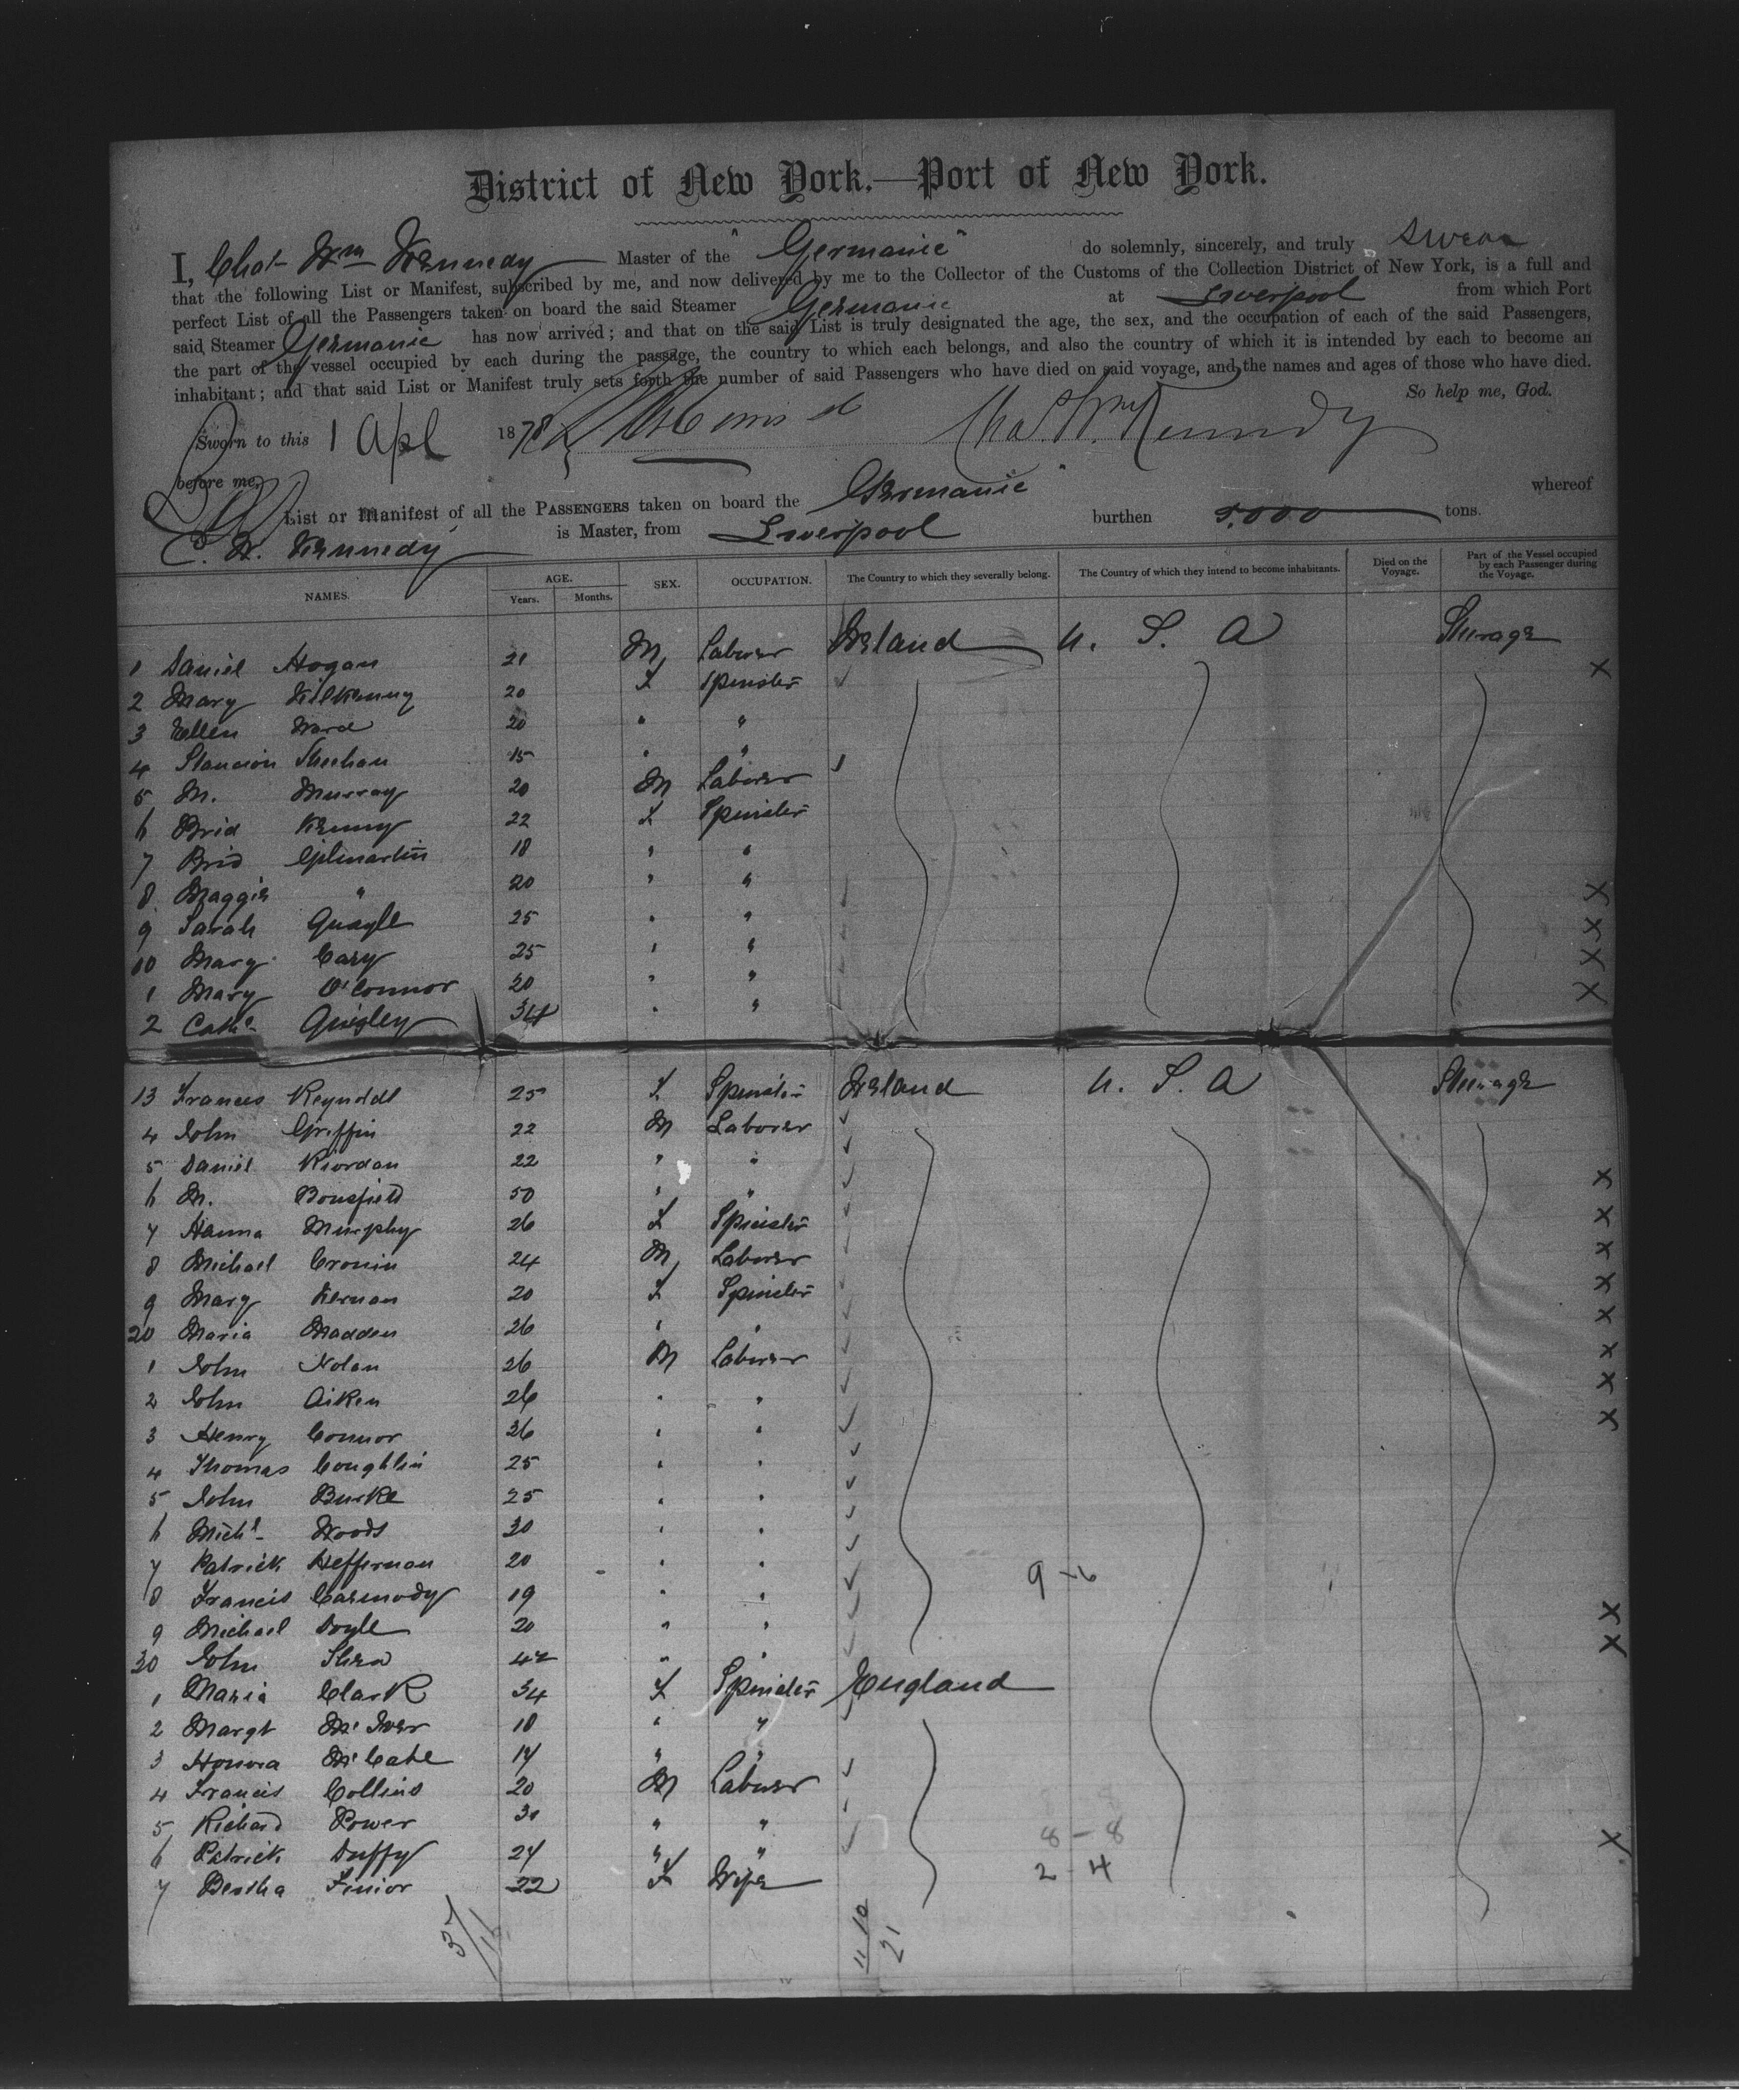 District of New York.—Port of New York.
I, Chas Wm Kennedy Master of the "Germanic" do solemnly, sincerely, and truly swear
that the following List or Manifest, subscribed by me, and now delivered by me to the Collector of the Customs of the Collection District of New York, is a full and
perfect List of all the Passengers taken on board the said Steamer Germanic at Liverpool from which Port
said Steamer Germanic has now arrived; and that on the said List is truly designated the age, the sex, and the occupation of each of the said Passengers,
the part of the vessel occupied by each during the passage, the country to which each belongs, and also the country of which it is intended by each to become an
inhabitant; and that said List or Manifest truly sets forth the number of said Passengers who have died on said voyage, and the names and ages of those who have died.
So help me, God.
Sworn to this 1 Apl 1878 Chas. Wm Kennedy
before me,
List or Manifest of all the PASSENGERS taken on board the "Germanic" whereof
C. W. Kennedy is Master, from Liverpool burthen 5.000 tons.
NAMES. AGE. Years. Months. SEX. OCCUPATION. The Country to which they severally belong. The Country of which they intend to become inhabitants. Died on the Voyage. Part of the Vessel occupied by each Passenger during the Voyage.
1 Daniel Hogan 21 M Laborer Ireland U. S. A Steerage
2 Mary Kilkenny 20 F Spinster X
3 Ellen Ward 20 " "
4 Sheehan 15 " "
5 M. Murray 20 M Laborer
6 Brid Kenny 22 F Spinster
7 Brid Gilmartin 18 " "
8 Maggie " 20 " "
9 Sarah Quayle 25 " " X
10 Mary Cary 25 " " X
1 Mary O'Connor 20 " " X
2 Cathe Quigley 34 " " X
13 Frances Reynolds 25 F Spinster Ireland U. S. A Steerage
4 John Griffin 22 M Laborer
5 Daniel Riordan 22 " "
6 M. Bousfield 50 " " X
7 Hanna Murphy 26 F Spinster X
8 Michael Cronin 24 M Laborer X
9 Mary Kernan 20 F Spinster X
20 Maria Madden 26 " " X
1 John Nolan 26 M Laborer X
2 John Aiken 26 " " X
3 Henry Connor 26 " " X
4 Thomas Coughlin 25 " "
5 John Burke 25 " "
6 Michl Woods 30 " "
7 Patrick Heffernan 20 " "
8 Francis Carmody 19 " " 9
9 Michael Doyle 20 " " X
30 John Shea 42 " " X
1 Maria Clark 34 F Spinster England
2 Margt McIver 18 " "
3 Honora McCabe 17 " "
4 Francis Collins 20 M Laborer
5 Richard Power 30 " "
6 Patrick Duffy 24 " " 8 - 8 X
7 Bertha Finior 22 F Wife 2 - 4
37/16 11 10
21